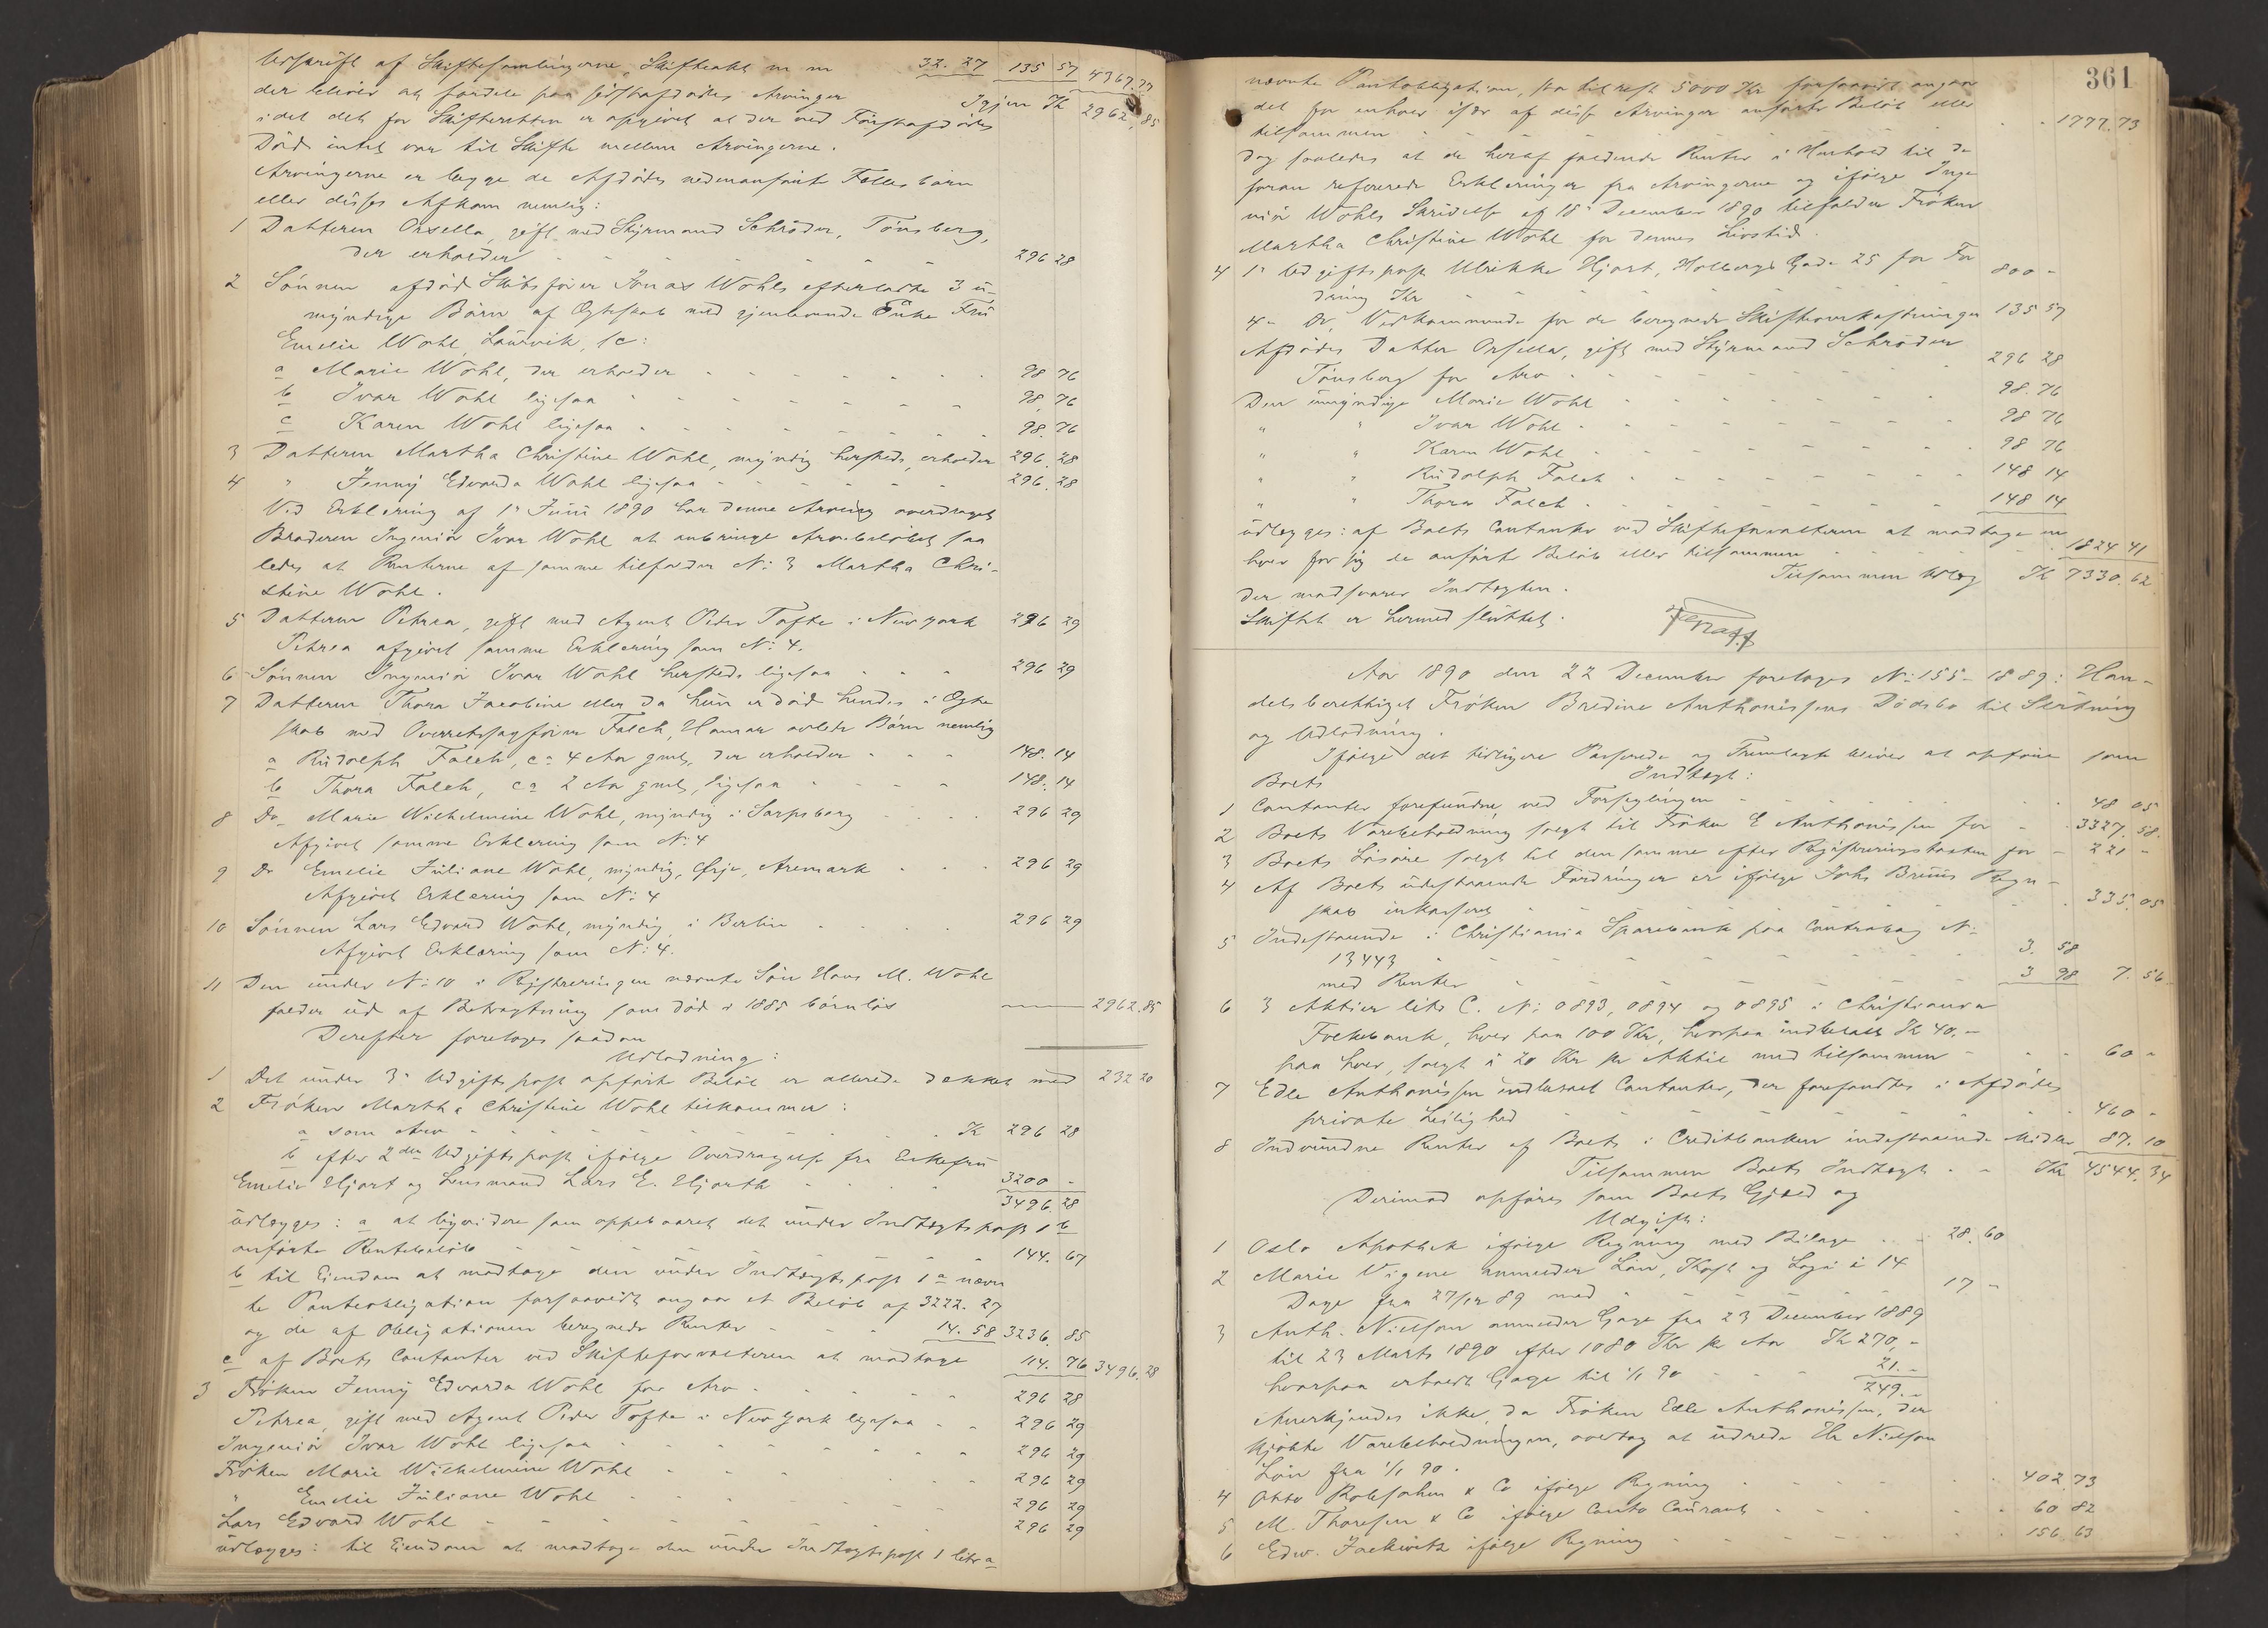 Udskrift af Skiftesamlingerne, Skifteakt m m 32. 27 135 57 4367.77
der bliver at fordele paa sidstafdödes Arvinger Igjen Kr 2962,85
idet det for Skifteretten er opgivet at der ved Förstafdödes
Död intet var til Skifte mellem Arvingerne.
Arvingerne er begge de Afdödes nedenanförte Fællesbörn
eller disses Afkom nemlig:
1 Datteren Orsella, gift med Styrmand Schröder, Tönsberg,
der erholder 296 28
2 Sönnen afdöd Skibsförer Jonas Wohls efterladte 3 u-
myndige Börn af Ægteskab med gjenlevende Enke Fru
Emelie Wohl, Laurvik, sc:
a Marie Wohl, der erholder 98 76
b Ivar Wohl ligesaa 98, 76
c Karen Wohl ligesaa 98. 76
3 Datteren Martha Christine Wohl, myndig hersteds, erholder 296. 28
4 " Jenny Edvarda Wohl ligesaa 296. 28
Ved Erklæring af 1ste Juni 1890 har denne Arving overdraget
Broderen Ingeniör Ivar Wohl at anbringe Arvebelöbet saa
ledes at Renterne af samme tilfalder No: 3 Martha Chri-
stine Wohl.
5 Datteren Petrea, gift med Agent Peder Tofte i New york 296 29
Petrea afgivet samme Erklæring som No: 4.
6 Sönnen Ingeniör Ivar Wohl hersteds ligesaa 296 29
7 Datteren Thora Jacobine eller da hun er död hendes i Ægte
skab med Overretssagförer Falch, Hamar avlede Börn nemlig
a Rudolph Falch, ca 4 Aar gml, der erholder 148. 14
b Thora Falch, ca 2 Aar gml, ligesaa 148. 14
8 Do Marie Wilhelmine Wohl, myndig i Sarpsborg 296 29
Afgivet samme Erklæring som No: 4
9 Do Emelie Juliane Wohl, myndig, Örje, Aremark 296 29
Afgivet Erklæring som No: 4
10 Sönnen Lars Edvard Wohl, myndig, i Berlin 296 29
Afgivet Erklæring som No: 4.
11 Den under No: 10 i Registreringen nævnte Sön Hans M. Wohl
falder ud af Betragtning som död i 1885 barnlös 2962.85
Derefter foretoges saadan
Udlodning:
1 Det under 3die Udgiftspost opförte Belöb er allerede dækket med 232 20
2 Fröken Martha Christine Wohl tilkommer:
a som Arv Kr 296 28
b efter 2den Udgiftspost ifölge Overdragelse fra Enkefru
Emelie Hjort og Lensmand Lars E. Hjorth 3200 -
3496. 28
udlægges: a at liqvidere som oppebaaret det under Indtægtspost 1 b
anförte Rentebelöb 144. 67
b til Eiendom at modtage den under Indtægtspost 1 a nævn
te Panteobligation forsaavidt angaar et Belöb af 3222. 27
og de af Obligationen beregnede Renter 14. 58 3236. 85
c af Boets Contanter ved Skifteforvalteren at modtage 114. 76 3496. 28
3 Fröken Jenny Edvarda Wohl for Arv 296 28
Petrea, gift med Agent Peder Tofte i New York ligesaa 296 29
Ingeniör Ivar Wohl ligesaa 296 29
Fröken Marie Wilhelmine Wohl 296 29
" Emelie Juliane Wohl 296 29
Lars Edvard Wohl 296 29
udlægges: til Eiendom at modtage den under Indtægtspost 1 litr a
361
nævnte Panteobligation, stor til rest 5000 Kr forsaavidt angaar
det for enhver især af disse Arvinger anförte Belöb eller
tilsammen 1777. 73
dog saaledes at de heraf faldende Renter i Henhold til de
foran refererede Erklæringer fra Arvingerne og ifölge Inge
niör Wohls Skrivelse af 18de December 1890 tilfalder Fröken
Martha Christine Wohl for dennes Livstid.
4 1ste Udgiftspost Ulrikke Hjort, Holbergs Gade 25 for For
dring Kr 800 -
4de Do, Vedkommende for de beregnede Skifteomkostninger 135 57
Afdödes Datter Orsella, gift med Styrmand Schröder
Tönsberg for Arv 296 28
Den umyndige Marie Wohl 98. 76
" " Ivar Wohl 98 76
" " Karen Wohl 98 76
" " Rudolph Falch 148 14
" " Thora Falch 148 14
udlægges: af Boets Contanter ved Skifteforvalteren at modtage en
hver for sig de anförte Belöb eller tilsammen 1824 41
Tilsammen Udlæg Kr 7330. 62
der modsvarer Indtægten.
Skiftet er hermed sluttet.
Aar 1890 den 22 December foretoges No: 155 - 1889: Han-
delsberettiget Fröken Bredine Anthonissens Dödsbo til Slutning
og Udlodning.
Ifölge det tidligere Passerede og Fremlagte bliver at opföre som
Boets Indtægt:
1 Contanter forefundne ved Forseglingen 48 05
2 Boets Varebeholdning solgt til Fröken E Anthonissen for 3327. 58.
3 Boets Lösöre solgt til den samme efter Registreringstaxten for 221 -
4 Af Boets udestaaende Fordringer er ifölge Johs Bruuns Regn-
skab inkasseret 335. 05
5 Indestaaende i Christiania Sparebank paa Contrabog No:
13443 3. 58
med Renter 3 98 7. 56
6 3 Aktier litr C. No: 0893, 0894 og 0895 i Christiania
Folkebank, hver paa 100 Kr, hvorpaa indbetalt Kr 40,-
paa hver, solgt à 20 Kr pr Aktie med tilsammen 60 -
7 Edle Anthonissen indbetalt Contanter, der forefandtes i Afdödes
private Leilighed 460 -
8 Indvundne Renter af Boets i Creditbanken indestaaende Midler 87. 10
Tilsammen Boets Indtægt Kr 4544. 34
Derimod opföres som Boets Gjæld og
Udgift:
1 Oslo Apothek ifölge Regning med Bilage 28. 60
2 Marie Vigene anmelder Lön, Kost og Logi i 14
Dage fra 27/12 89 med 17 -
3 Anth. Nielsen anmelder Gage fra 23 December 1889
til 23 Marts 1890 efter 1080 Kr pr Aar Kr 270,-
hvorpaa erholdt Gage til 1/1 90 21.-
249.-
Anerkjendes ikke, da Fröken Edle Anthonissen, der
kjöbte Varebeholdningen, overtog at udrede Hr Nielsen
Lön fra 1/1 90.
4 Otto Robsahm & Co ifölge Regning 402 73
5 M. Thoresen & Co ifölge Conto Courant 60 82
6 Edw. Jackwitz ifölge Regning 156 63